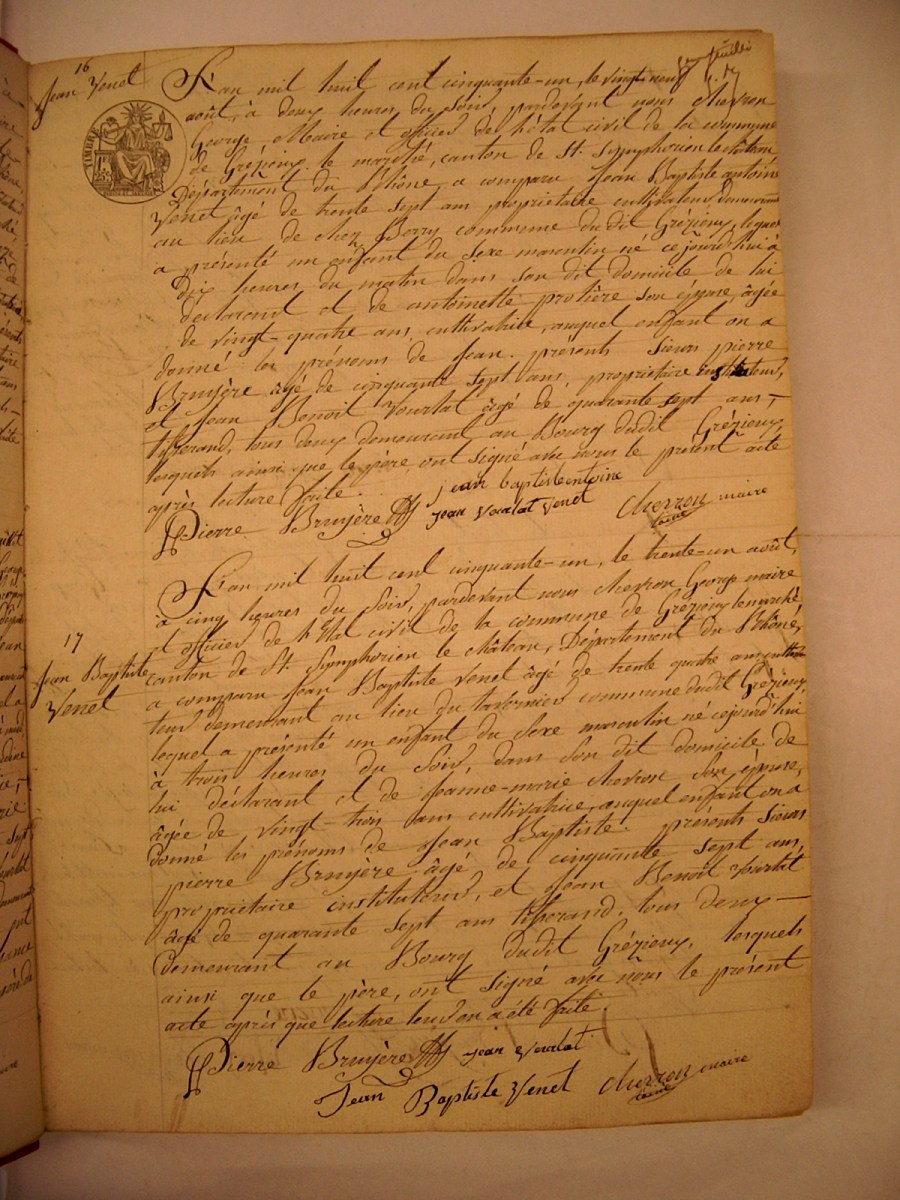 16
Jean Venet
TIMBRE
L'an mil huit cent cinquante-un, le vingt neuf
août, à deux heures du soir, pardevant nous Chevron
George Maire et officier de l'état civil de la commune
de Grézieux le marché, canton de St. Symphorien le château
Département du Rhône, a comparu Jean Baptiste antoine
Venet âgé de trente sept ans propriétaire cultivateur, demeurant
au lieu de chez Berry commune dudit Grézieux, lequel
a présenté un enfant du sexe masculin né cejourd'hui à
dix heures du matin dans son dit domicile de lui
déclarant et de antoinette protière son épouse, âgée
de vingt-quatre ans, cultivatrice, auquel enfant on a
donné les prénoms de Jean. présents Sieurs pierre
Bruyère âgé de cinquante sept ans, propriétaire instituteur,
et Jean Benoit Vourlat âgé de quarante sept ans,
tisserand, tous deux demeurant au Bourg dudit Grézieux,
lesquels ainsi que le père, ont signé avec nous le présent acte
après lecture faite.
Pierre Bruyère jean baptiste entoine
Jean Vourlat Venet Chevron maire
17
Jean Baptiste
Venet
L'an mil huit cent cinquante-un, le trente-un août,
à cinq heures du soir, pardevant nous Chevron George maire
et officier de l'état civil de la commune de Grézieux le marché
canton de St. Symphorien le château, Département du Rhône,
a comparu Jean Baptiste Venet âgé de trente quatre ans cultiva
teur demeurant au lieu du tavernier commune dudit Grézieux,
lequel a présenté un enfant du sexe masculin né cejourd'hui
à trois heures du soir, dans son dit domicile de
lui déclarant et de Jeanne-marie Chevron son épouse,
âgée de vingt-trois ans cultivatrice, auquel enfant on a
donné les prénoms de Jean Baptiste. présents Sieurs
pierre Bruyère âgé de cinquante sept ans,
propriétaire instituteur, et Jean Benoît Vourlat
âgé de quarante sept ans tisserand, tous deux
demeurant au Bourg dudit Grézieux, lesquels
ainsi que le père, ont signé avec nous le présent
acte après que lecture leur en a été faite.
Pierre Bruyère jean Vourlat
Jean Baptiste Venet Chevron maire